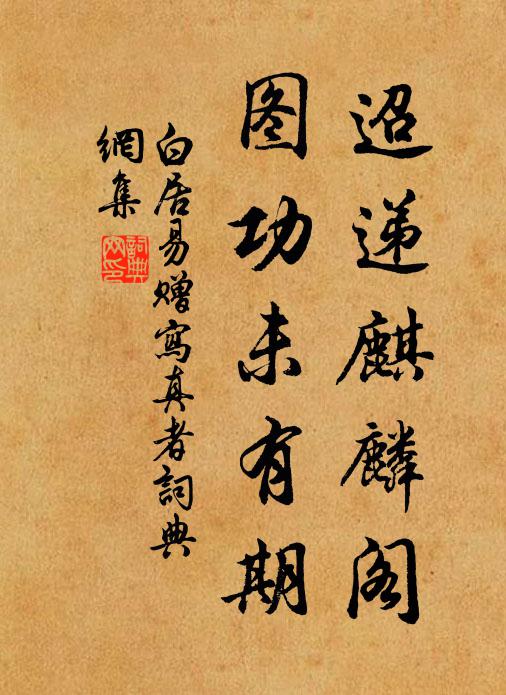 迢递麒麟阁
图功未有期
白居易赠寫真者詞典
網集
詞典
网印